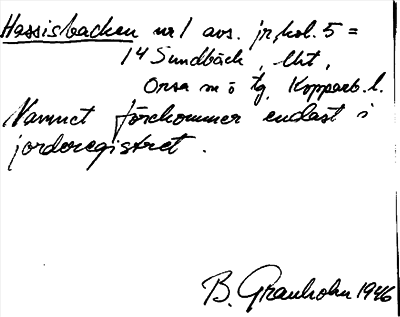 Hassisbacken nr 1 avs. jr, kol. 5 =
14 Sundbäck, Uht,
Orsa sn ö tg, Kopparb. l.
Namnet förekommer endast i
jordregistret.
B. Granholm 1946